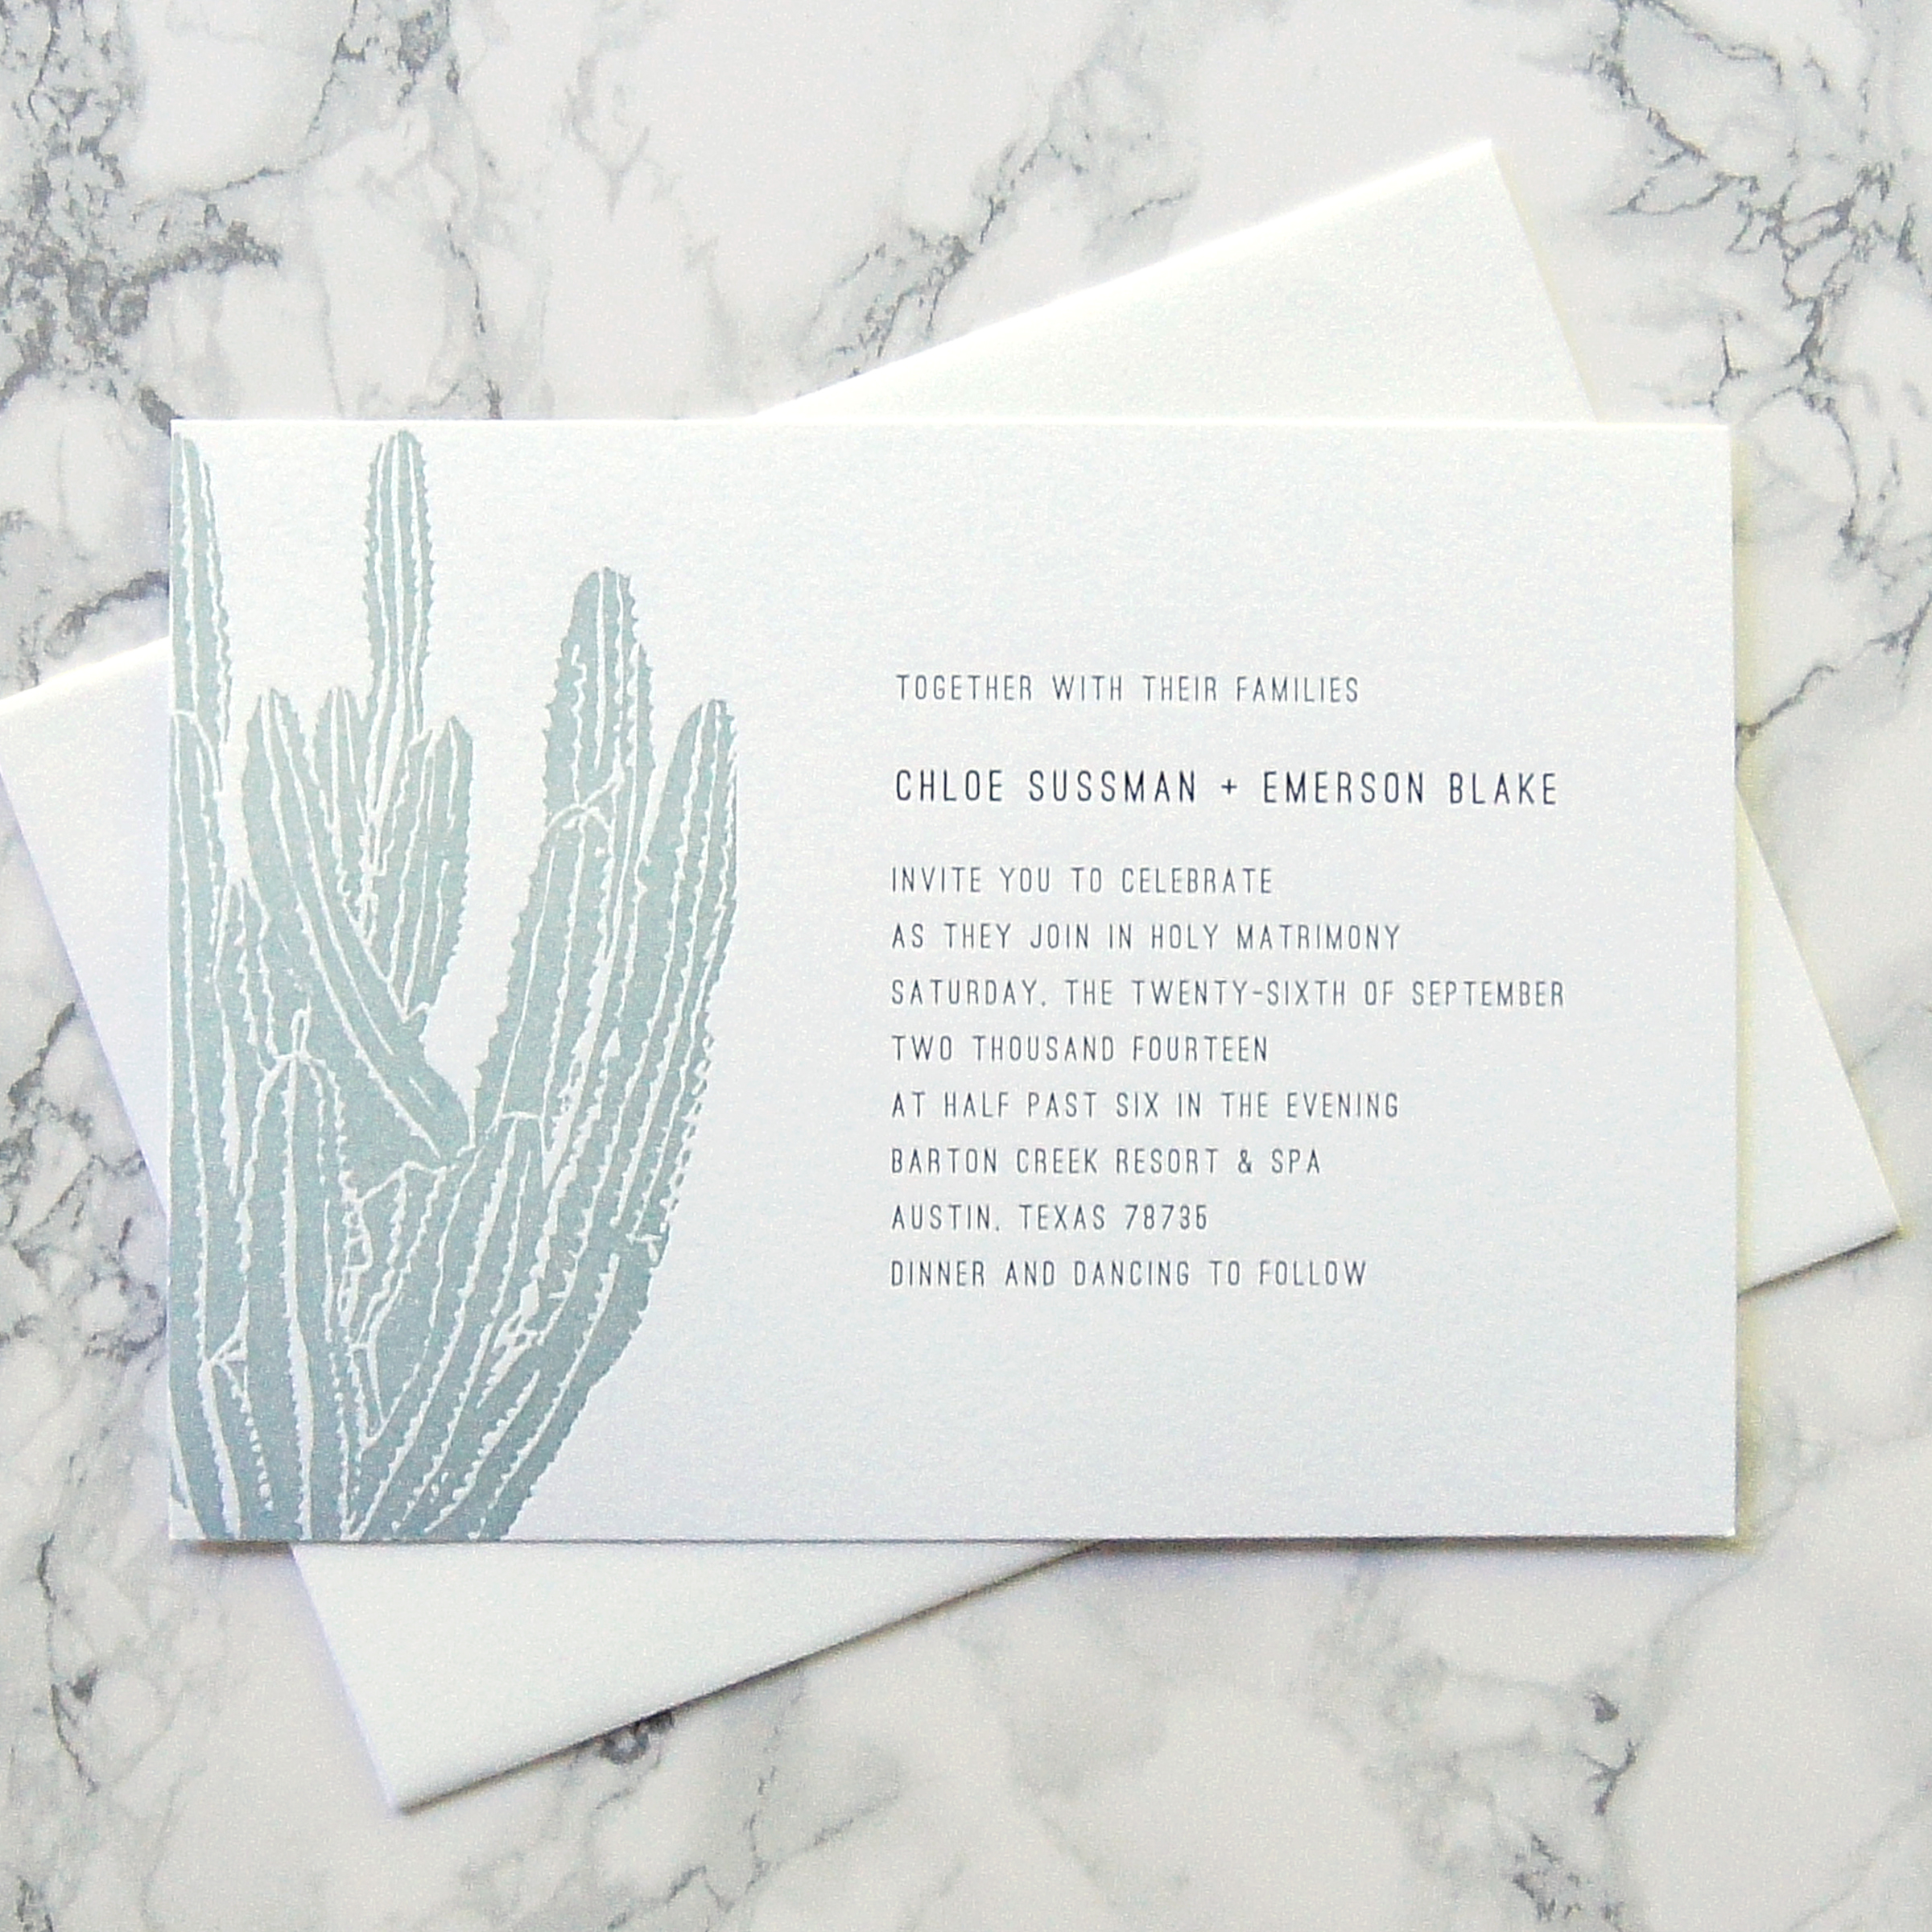 TOGETHER WITH THEIR FAMILIES
CHLOE SUSSMAN + EMERSON BLAKE
INVITE YOU TO CELEBRATE
AS THEY JOIN IN HOLY MATRIMONY
SATURDAY, THE TWENTY-SIXTH OF SEPTEMBER
TWO THOUSAND FOURTEEN
AT HALF PAST SIX IN THE EVENING
BARTON CREEK RESORT & SPA
AUSTIN, TEXAS 78735
DINNER AND DANCING TO FOLLOW